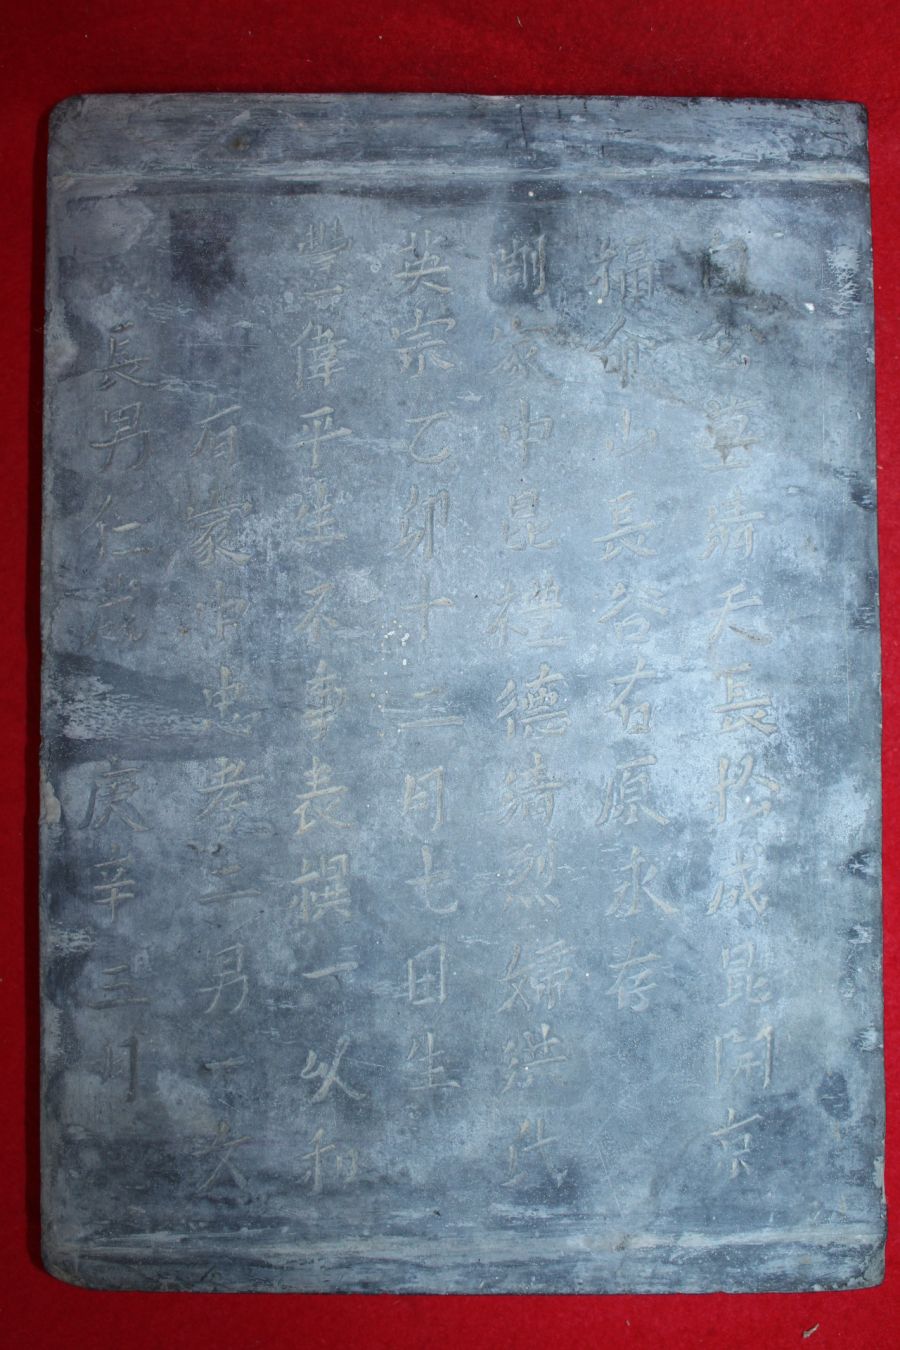 公堂靖天長於成昆開京
命山長谷有原永存
家中昆禮德綺烈婦洪氏
英宗乙卯十二月七日生
一偉平生不事表襮一以和
有蒙中忠孝二男一女
長男仁成 庚辛三月